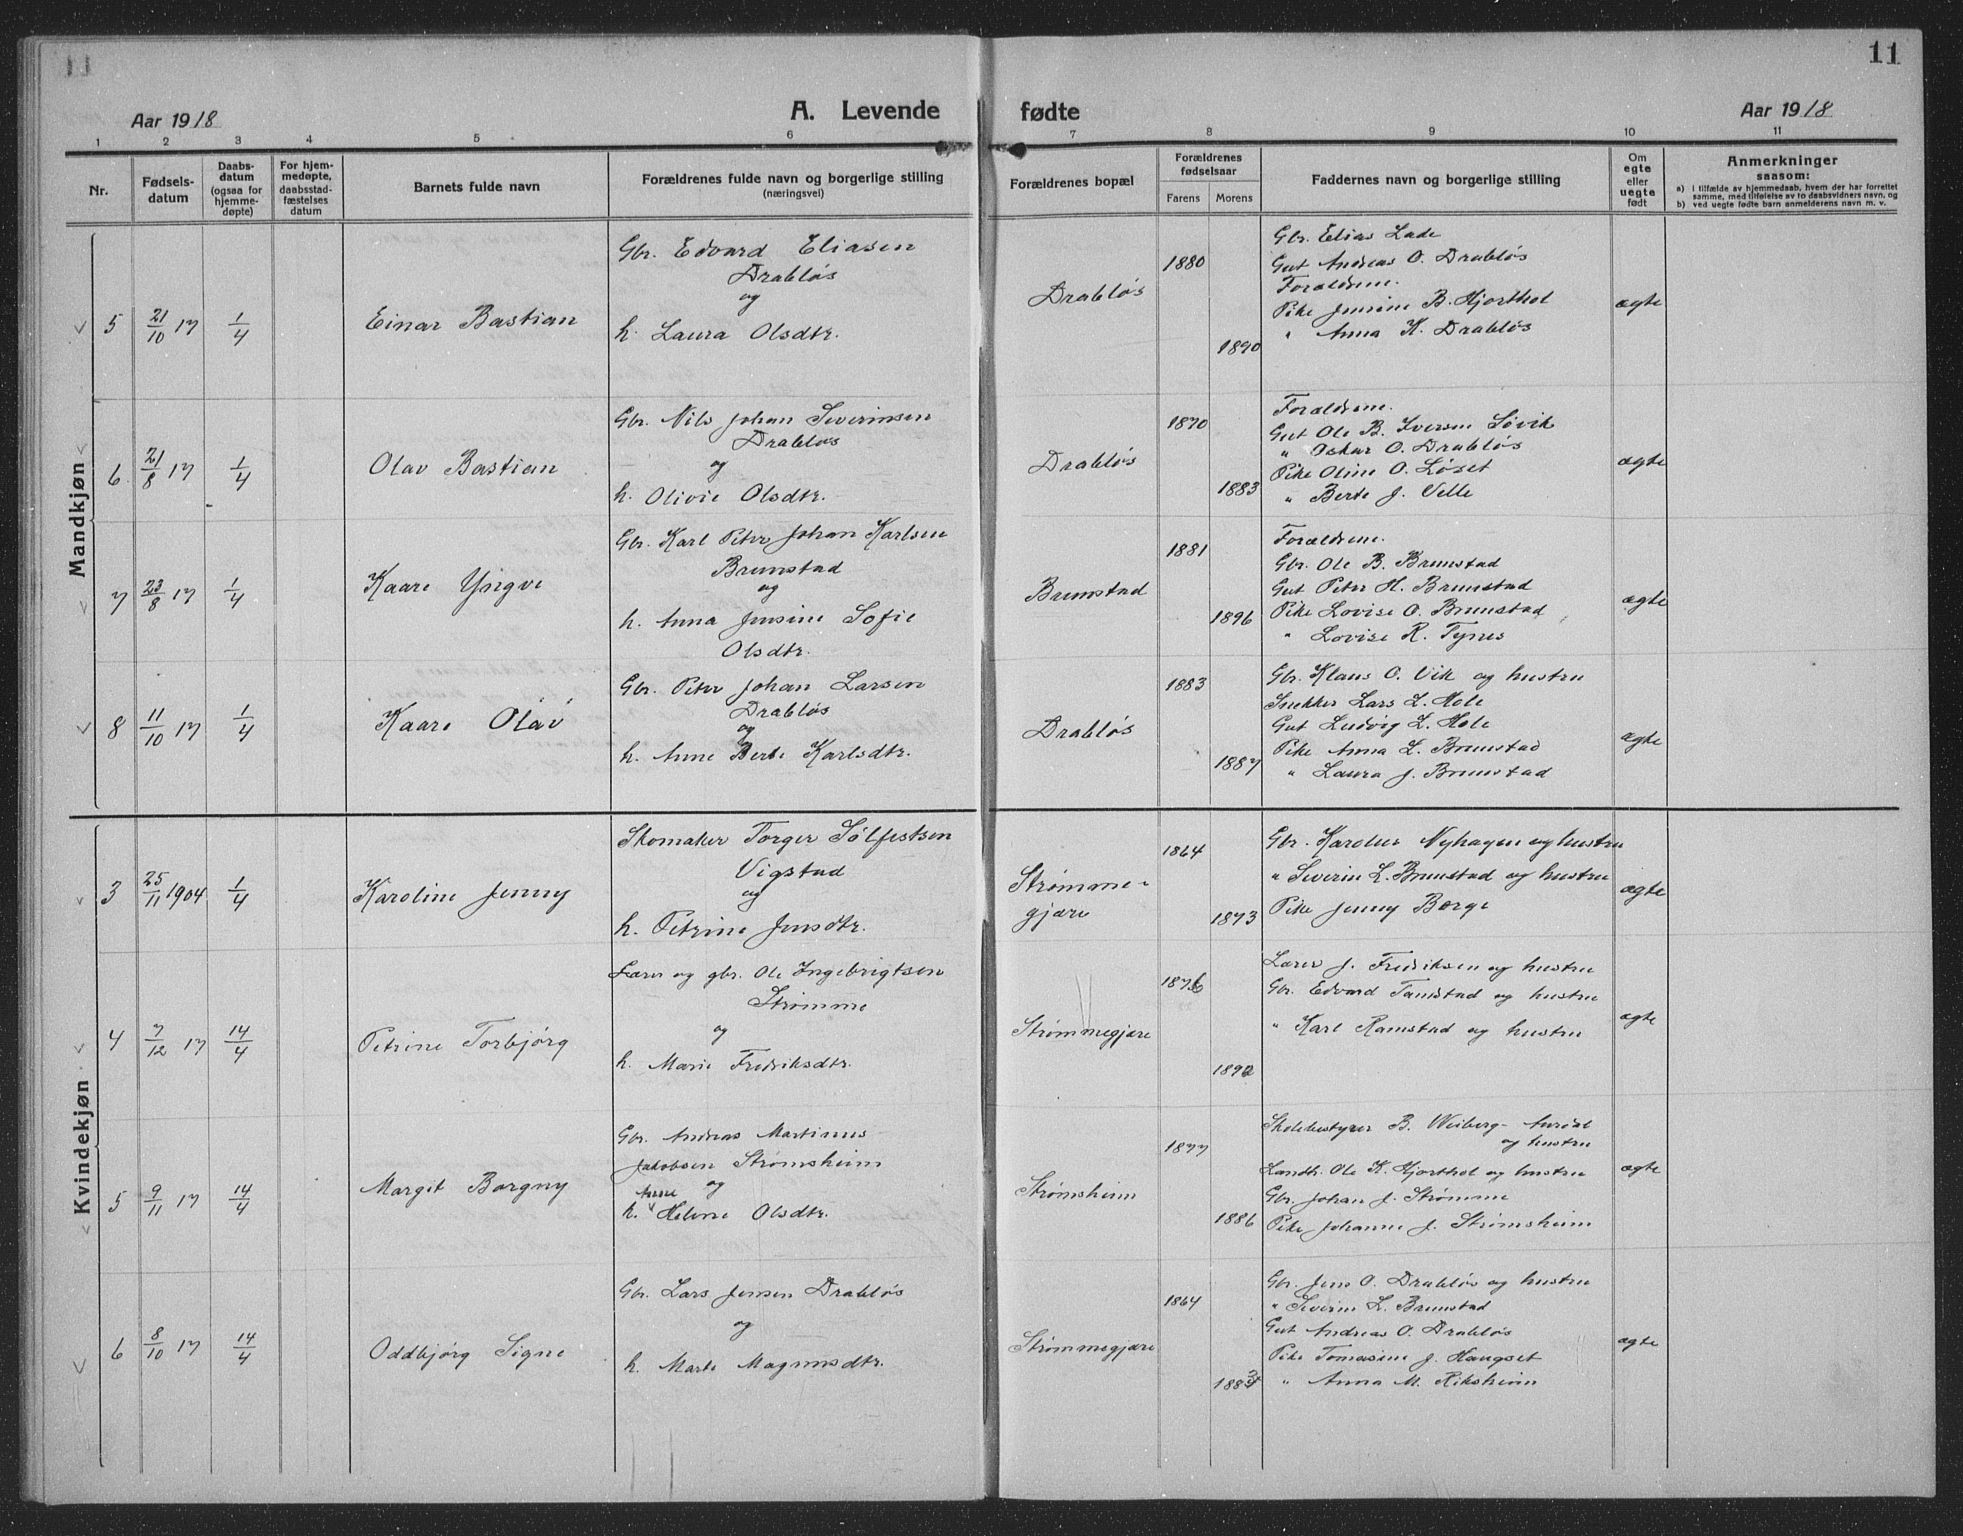 11
Aar 1918
A. Levende fødte
Aar 1918
1 2 3 4 5 6 7 8 9 10 11
Nr.
Fødsels-
datum
Daabs-
datum
(ogsaa for
hjemme-
døpte)
For hjem-
medøpte,
daabsstad-
fæstelses
datum
Barnets fulde navn
Forældrenes fulde navn og borgerlige stilling
(næringsvei)
Forældrenes bopæl
Forældrenes
fødselsaar
Farens Morens
Faddernes navn og borgerlige stilling
Om
egte
eller
uegte
født
Anmerkninger
saasom:
a) i tilfælde av hjemmedaab, hvem der har forrettet
samme, med tilføielse av to daabsvidners navn, og
b) ved uegte fødte barn anmelderens navn m. v.
Mandkjøn
5 21/10 17 1/4
Einar Bastian
Gbr. Edvard Eliasen
Drabløs
og
h. Laura Olsdtr.
Drabløs
1880
1890
Gbr. Elias Lade
Gut Andreas O. Drabløs
Forældrene.
Pike Jensine B. Hjorthol
" Anna K. Drabløs
ægte
6 21/8 17 1/4
Olav Bastian
Gbr. Nils Johan Severinsen
Drabløs
og
h. Olivie Olsdtr.
Drabløs
1870
1883
Forældrene.
Gut Ole B. Iversen Søvik
" Oskar O. Drabløs
Pike Oline O. Løset
" Berte J. Velle
ægte
7 23/8 17 1/4
Kaare Yngve
Gbr. Karl Peter Johan Karlsen
Brunstad
og
h. Anna Jensine Sofie
Olsdtr.
Brunstad
1881
1896
Forældrene.
Gbr. Ole B. Brunstad
Gut Peter H. Brunstad
Pike Lovise O. Brunstad
" Lovise R. Tynes
ægte
8 11/10 17 1/4
Kaare Olav
Gbr. Peter Johan Larsen
Drabløs
og
h. Anne Berte Karlsdtr.
Drabløs
1883
1887
Gbr. Klaus O. Vik og hustru
Snekker Lars L. Hole
Gut Ludvig L. Hole
Pike Anna L. Brunstad
" Laura J. Brunstad
ægte
Kvindekjøn
3 25/11 1904 1/4
Karoline Jenny
Skomaker Torger Sølfestsen
Vigstad
og
h. Petrine Jensdtr.
Strømme-
gjære
1864
1873
Gbr. Karolus Nyhagen og hustru
" Severin L. Brunstad og hustru
Pike Jenny Borge
ægte
4 7/12 17 14/4
Petrine Torbjørg
Lærer og gbr. Ole Ingebrigtsen
Strømme
og
h. Marie Fredriksdtr.
Strømmegjære
1876
1892
Lærer J. Fredriksen og hustru
Gbr. Edvard Tandstad og hustru
" Karl Ramstad og hustru
ægte
5 9/11 17 14/4
Margit Borgny
Gbr. Andreas Martinus
Jakobsen Strømsheim
og
Anne
h. Helene Olsdtr.
Strømsheim
1877
1886
Skolebestyrer B. Weiberg-Aurdal
og hustru
Landh. Ole K. Hjorthol og hustru
Gbr. Johan J. Strømme
Pike Johanne J. Strømsheim
ægte
6 8/10 17 14/4
Oddbjørg Signe
Gbr. Lars Jensen Drabløs
og
h. Marte Magnusdtr.
Strømmegjære
1864
188
Gbr. Jens O. Drabløs og hustru
" Severin L. Brunstad
Gut Andreas O. Drabløs
Pike Tomasine J. Haugset
" Anna M. Riksheim
ægte